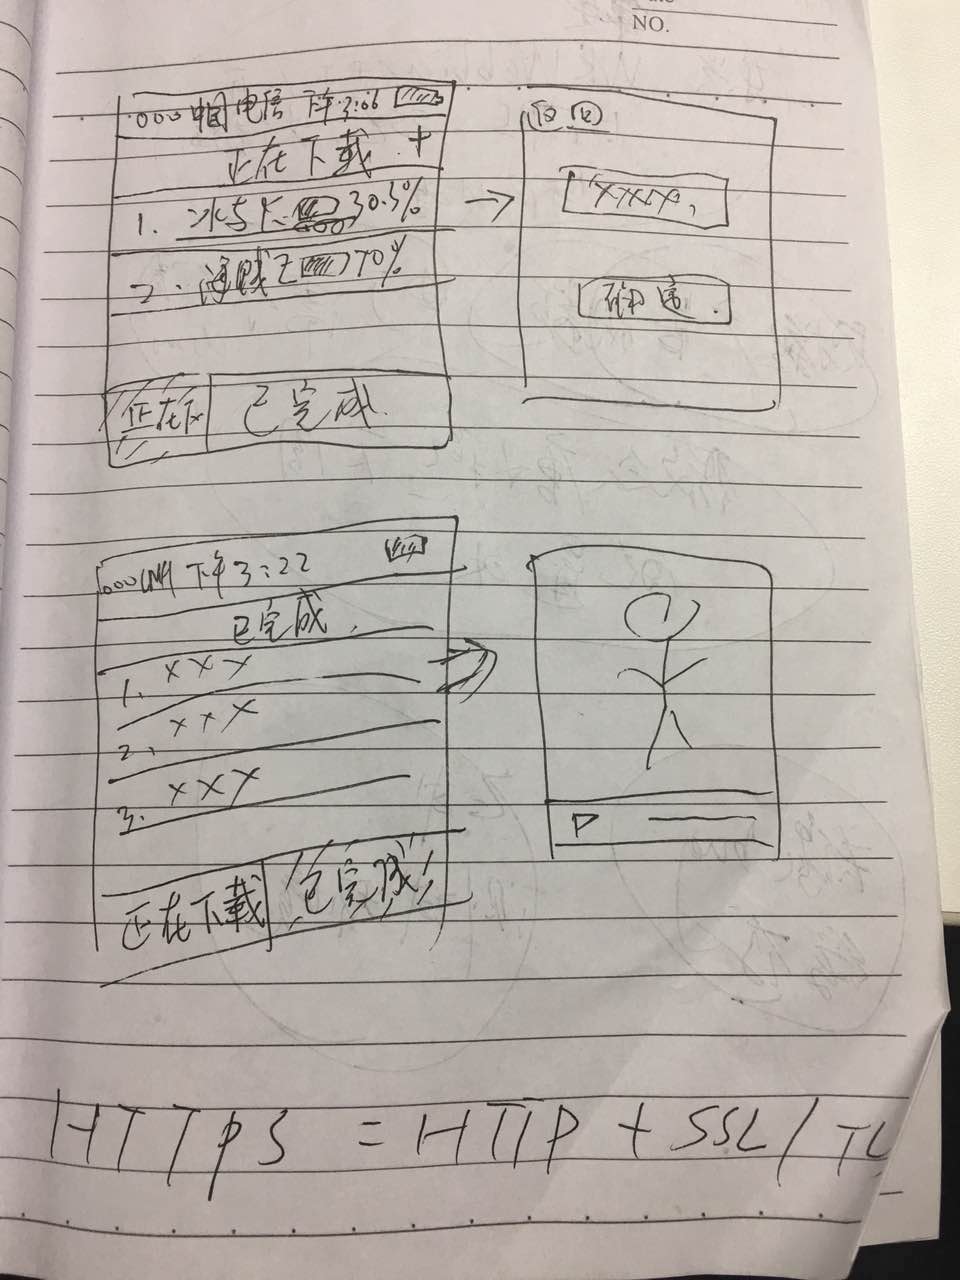 NO.
000中国电信 下午3:06
正在下载 +
1. 冰与火 30.5%
2. 海贼王 70%
正在下 已完成
返回
"XXXX,
确定.
000 下午3:22
已完成.
1. XXX
2. XXX
3. XXX
正在下载 已完成
HTTPS = HTTP + SSL/TL